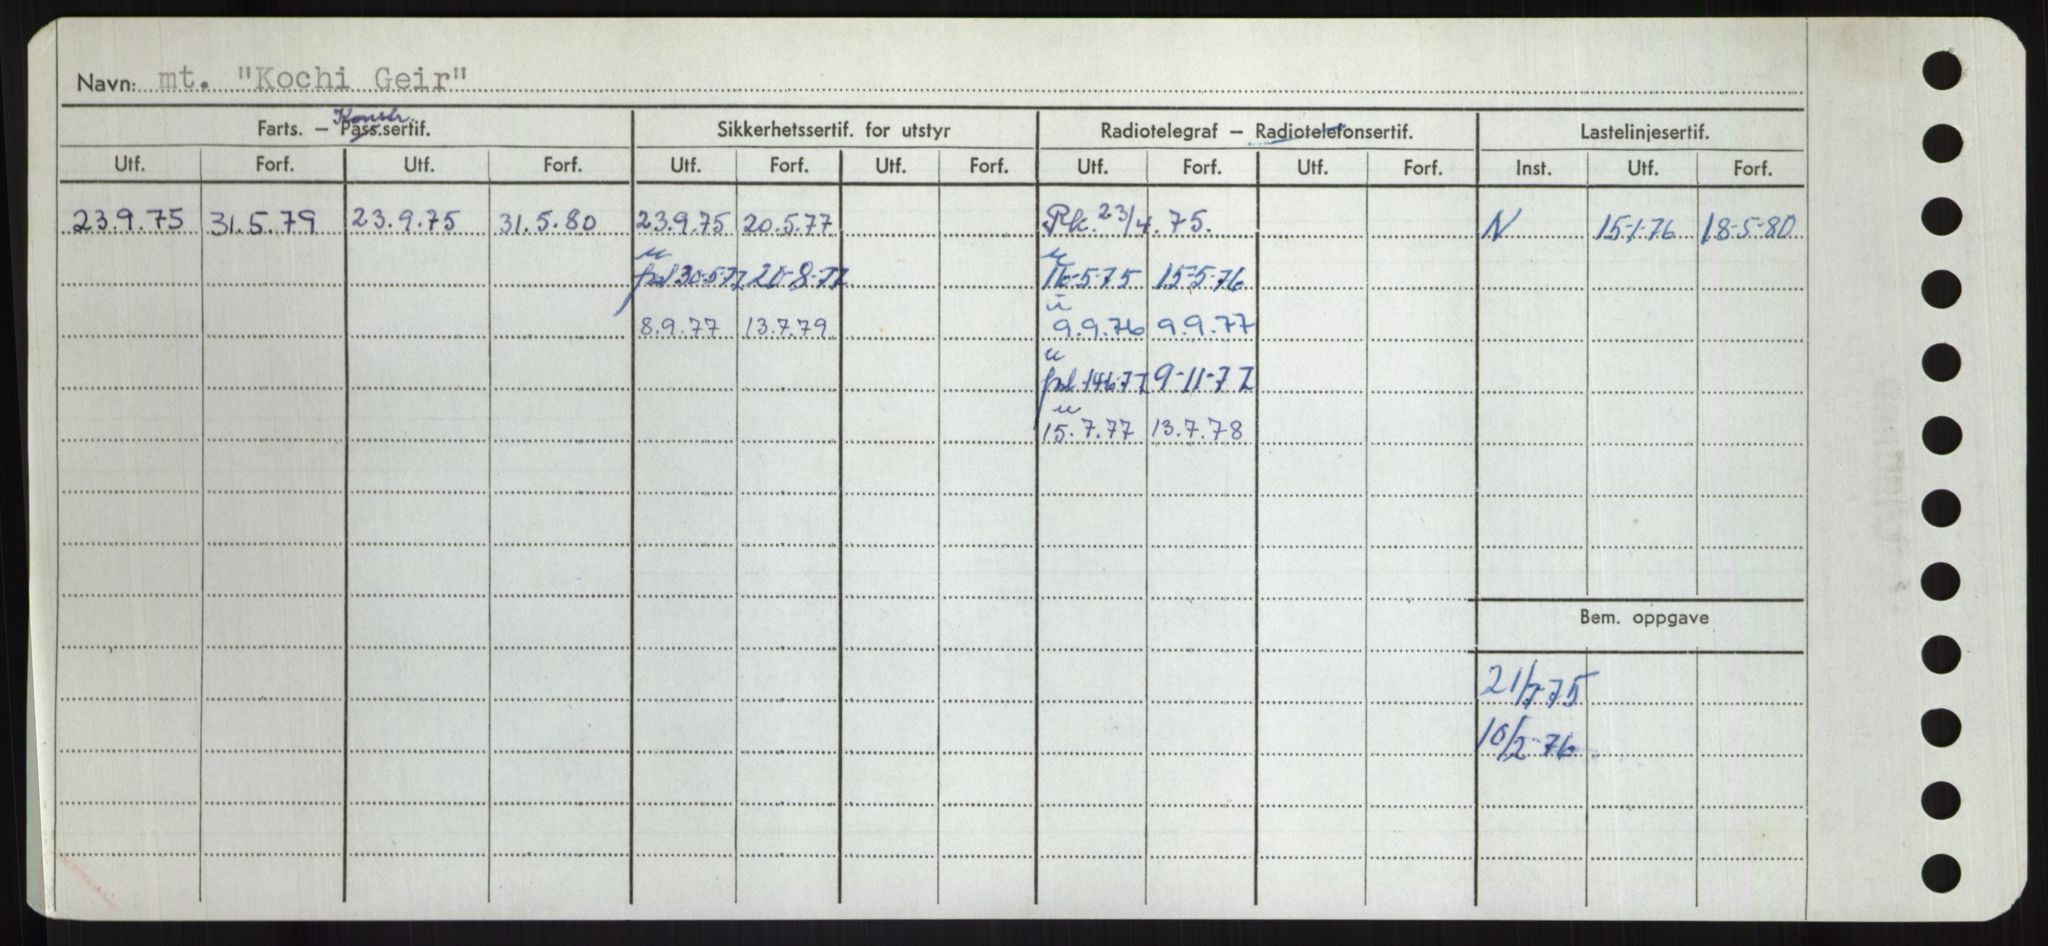 Navn: mt. "Kochi Geir"
Konstr.
Farts. — Pass.sertif. Sikkerhetssertif. for utstyr Radiotelegraf — Radiotelefonsertif. Lastelinjesertif.
Utf. Forf. Utf. Forf. Utf. Forf. Utf. Forf. Utf. Forf. Utf. Forf. Inst. Utf. Forf.
23.9.75 31.5.79 23.9.75 31.5.80 23.9.75 20.5.77 Pk. 23/4.75. N 15-1-76 18-5-80
u u
frl 30-5-77 20-8-77 16-5-75 15-5-76
u
8.9.77 13.7.79 9.9.76 9.9.77
u
frl 14-6-77 9-11-77
u
15.7.77 13.7.78
Bem. oppgave
21/7-75
10/2-76